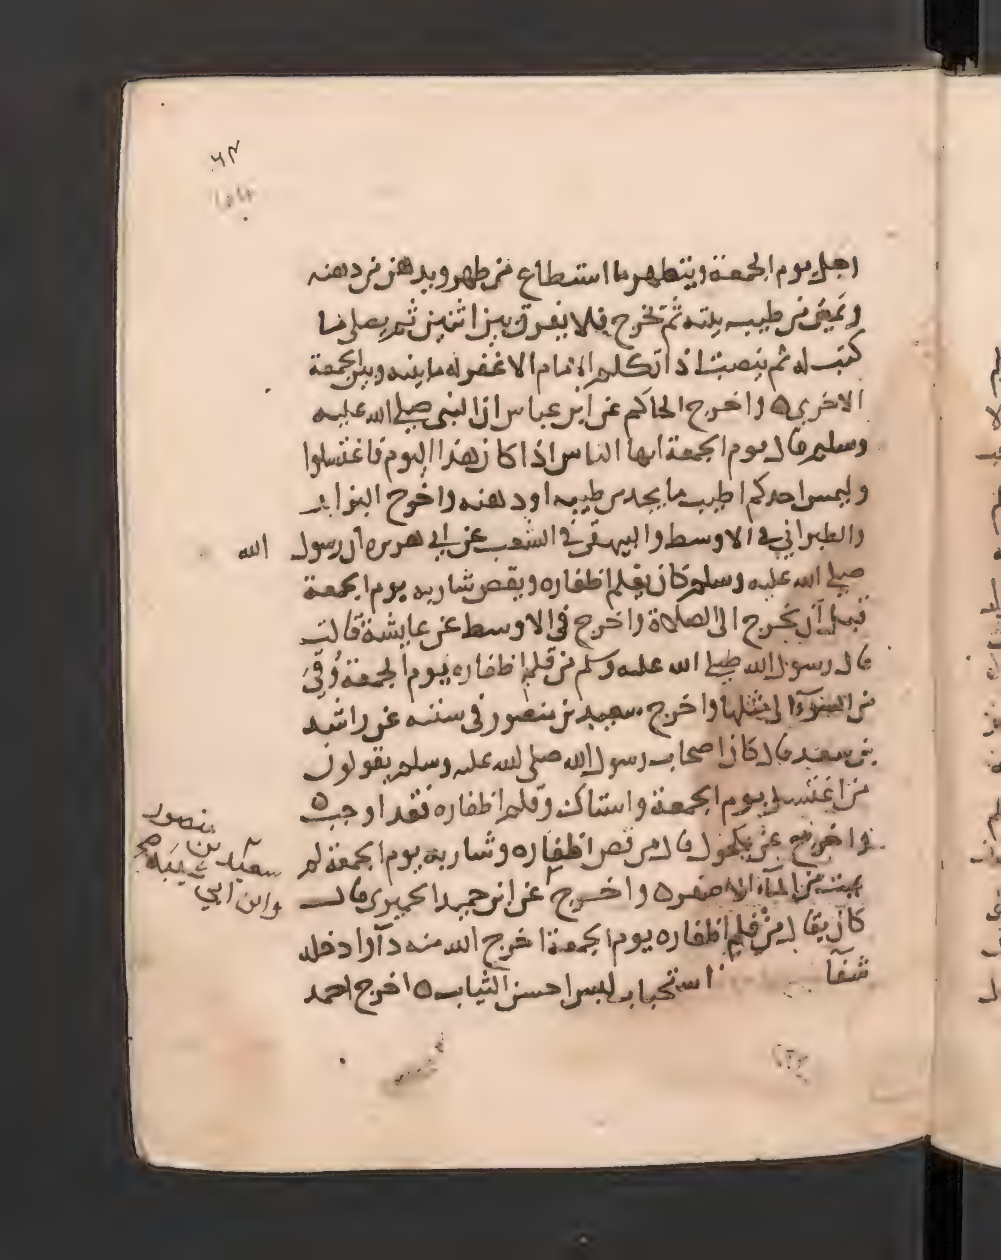 ٦٣
رجل يوم الجمعة ويتطهر ما استطاع من طهر ويدهن من دهنه
ويمس من طيب بيته ثم يخرج فلا يفرق بين اثنين ثم يصلي ما
كتب له ثم ينصت اذا تكلم الامام الا غفر له ما بينه وبين الجمعة
الاخرى ه واخرج الحاكم عن ابن عباس ان النبي صلى الله عليه
وسلم قال يوم الجمعة ايها الناس اذا كان هذا اليوم فاغتسلوا
وليمس احدكم اطيب ما يجد من طيبه او دهنه واخرج البزار
والطبراني في الاوسط والبيهقي في الشعب عن ابي هريرة ان رسول الله
صلى الله عليه وسلم كان يقلم اظفاره ويقص شاربه يوم الجمعة
قبل ان يخرج الى الصلاة واخرج في الاوسط عن عايشة قالت
قال رسول الله صلى الله عليه وسلم من قلم اظفاره يوم الجمعة وقي
من السوء الى مثلها واخرج سعيد بن منصور في سننه عن راشد
بن سعد قال كان اصحاب رسول الله صلى الله عليه وسلم يقولون
من اغتسل يوم الجمعة واستاك وقلم اظفاره فقد اوجب ه
واخرج عن مكحول قال من قص اظفاره وشاربه يوم الجمعة لم
يمت من الماء الاصفر ه واخرج عن ابن حميد الحميري قال
كان يقال من قلم اظفاره يوم الجمعة اخرج الله منه داء وادخله
شفآ استحباب لبس احسن الثياب ه اخرج احمد
سعيد بن منصور
وابن ابي شيبة صح